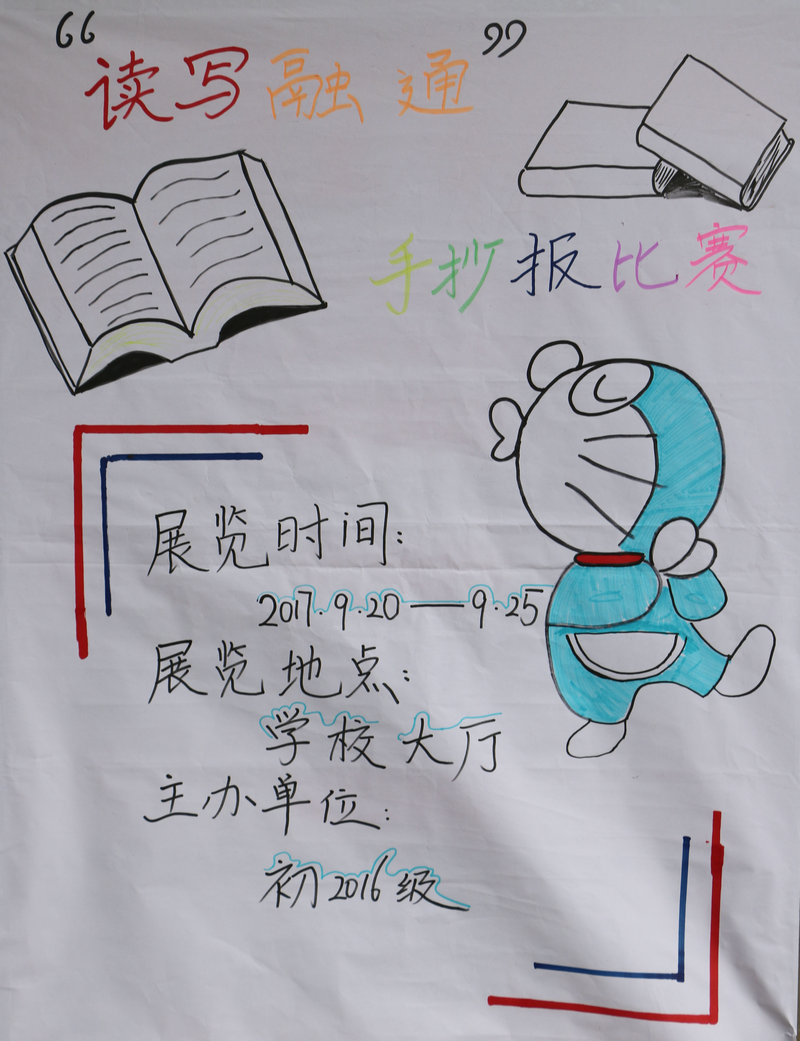 “读写融通”
手抄报比赛
展览时间:
2017.9.20—9.25
展览地点:
学校大厅
主办单位:
初2016级